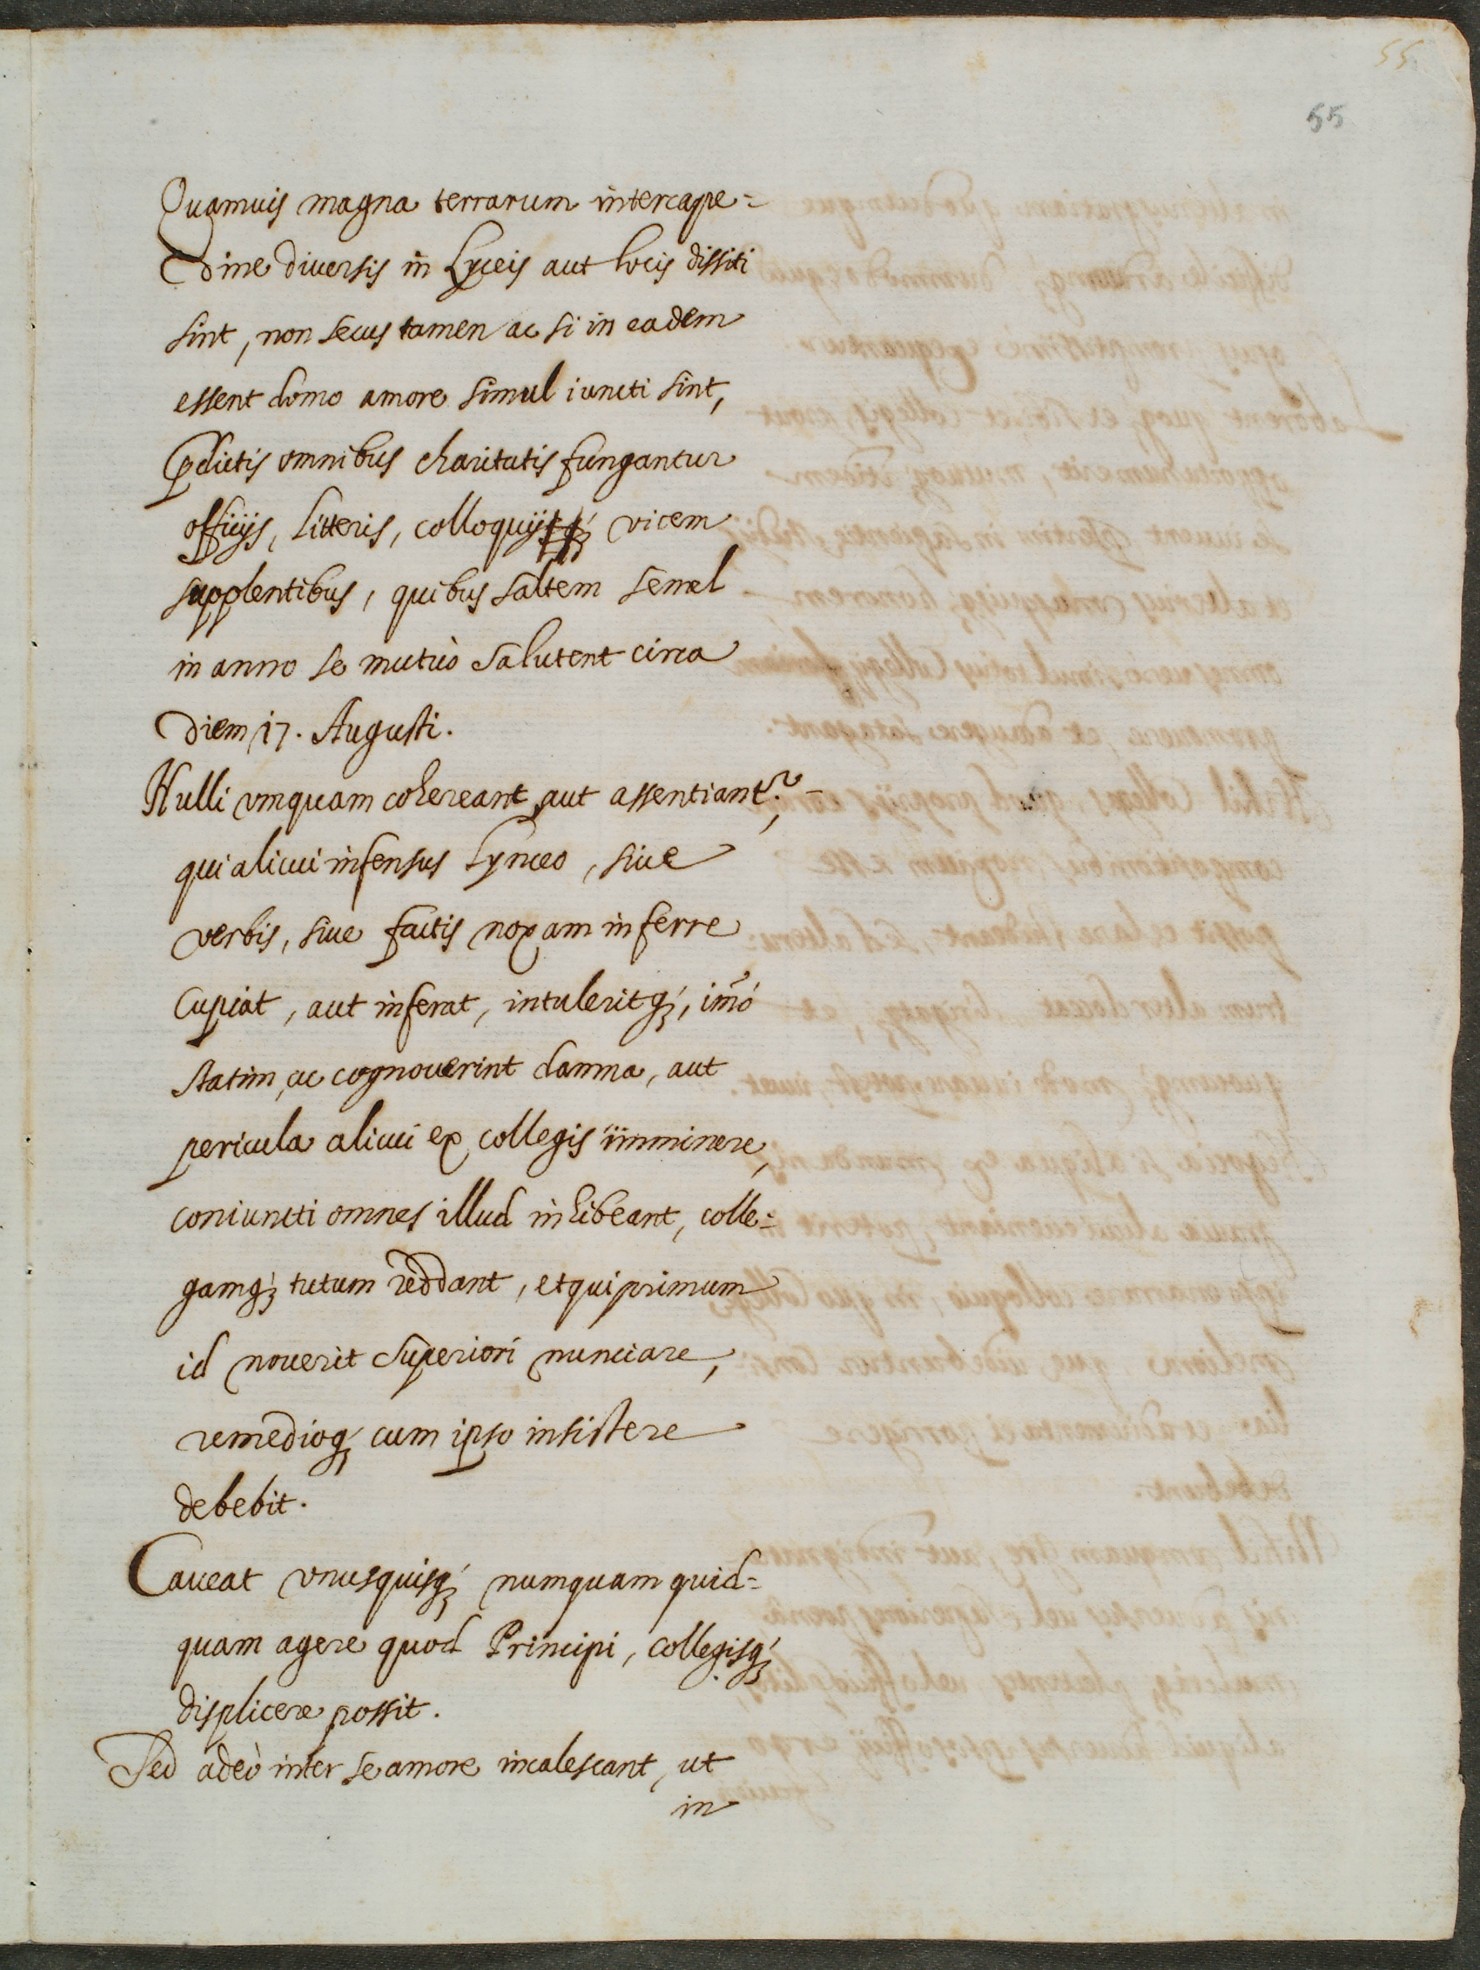 55.
55
Quamuis magna terrarum intercape=
dine diuersis in Lyceis aut locis dissiti
sint, non secus tamen ac si in eadem
essent domo amore simul iuncti sint,
p̃dictis omnibus charitatis fungantur
officijs, litteris, colloquijsq́; vicem
supplentibus, quibus saltem semel
in anno se mutuò salutent circa
diem 17. Augusti.
Nulli vnquam cohereant aut assentiant.r,
qui alicui infensus Lynceo, siue
verbis, siue factis noxam inferre
cupiat, aut inferat, intuleritq́;, im̃ó
statim, ac cognouerint damna, aut
pericula alicui ex collegis imminere,
coniuncti omnes illud inhibeant, colle=
gamq́; tutum reddant, et qui primum
id nouerit superiori nunciare,
remedioq́; cum ipso insistere
debebit.
Caueat vnusquisq́; numquam quid=
quam agere quod Principi, collegisq́;
displicere possit.
Sed adeò inter se amore incalescant, ut
in